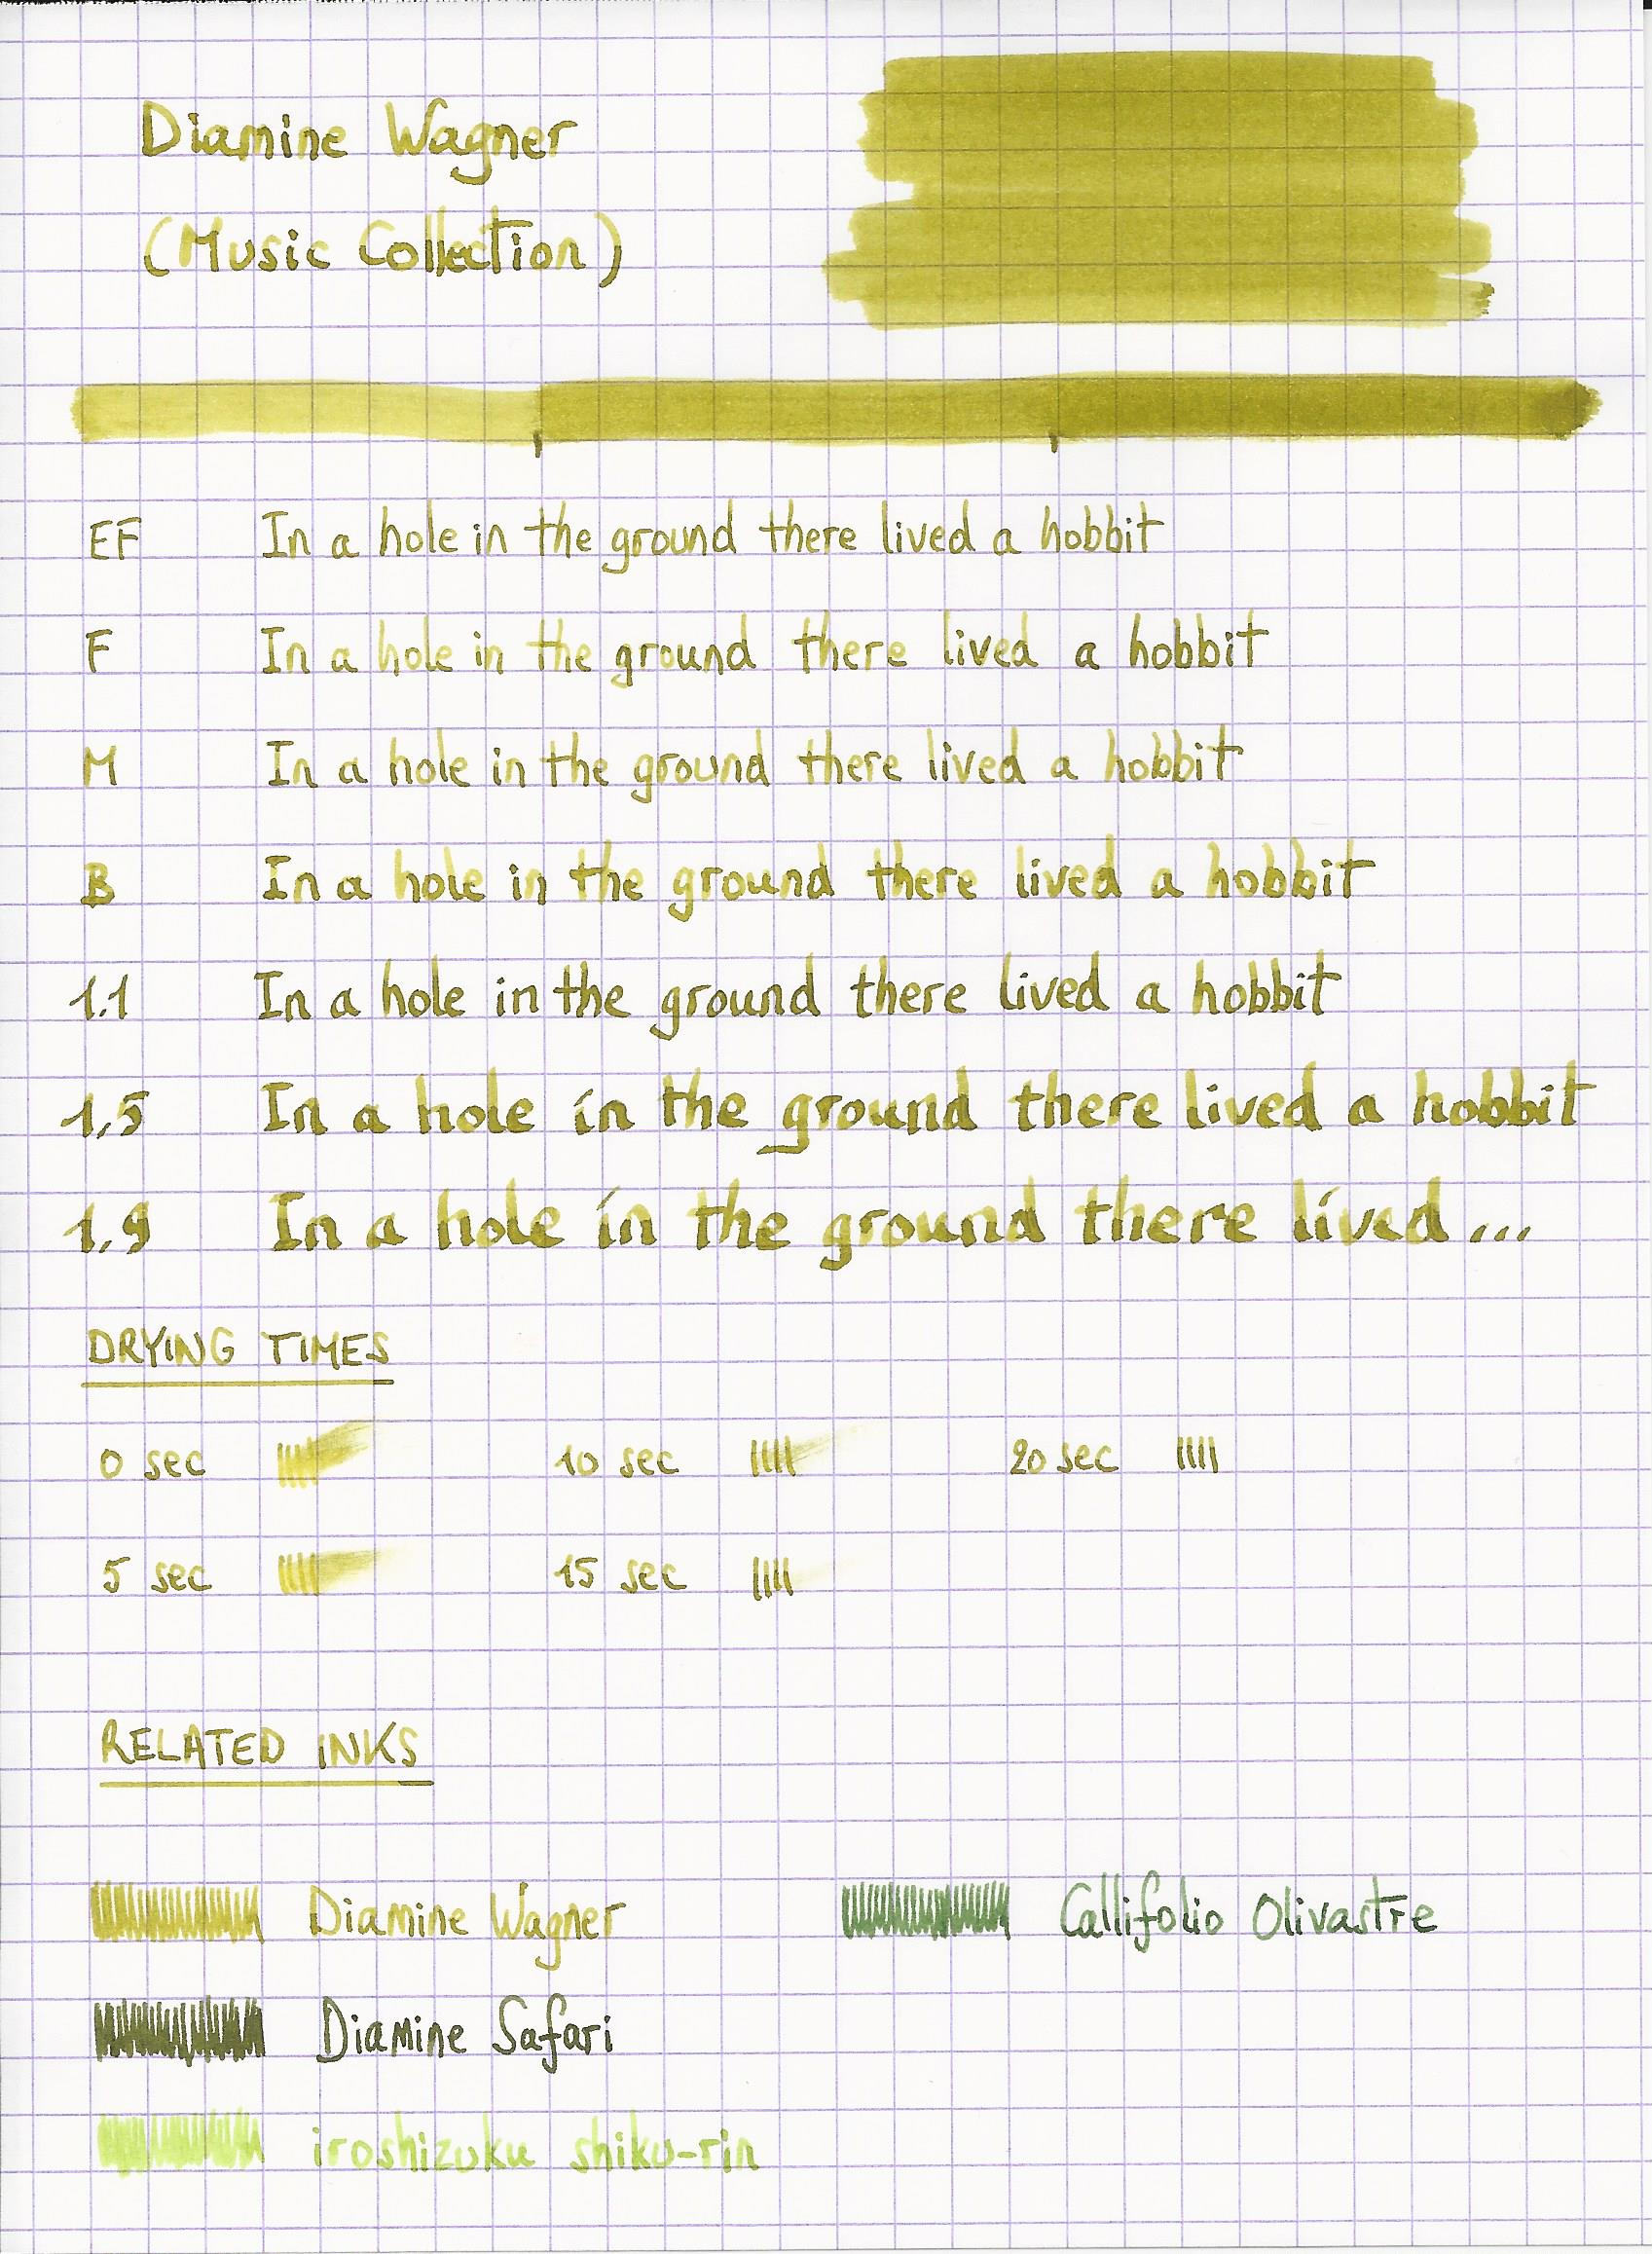 Diamine Wagner
(Music Collection)
EF In a hole in the ground there lived a hobbit
F In a hole in the ground there lived a hobbit
M In a hole in the ground there lived a hobbit
B In a hole in the ground there lived a hobbit
1.1 In a hole in the ground there lived a hobbit
1.5 In a hole in the ground there lived a hobbit
1.9 In a hole in the ground there lived...
DRYING TIMES
0 sec 10 sec 20 sec
5 sec 15 sec
RELATED INKS
Diamine Wagner Callifolio Olivastre
Diamine Safari
iroshizuku shiku-rin